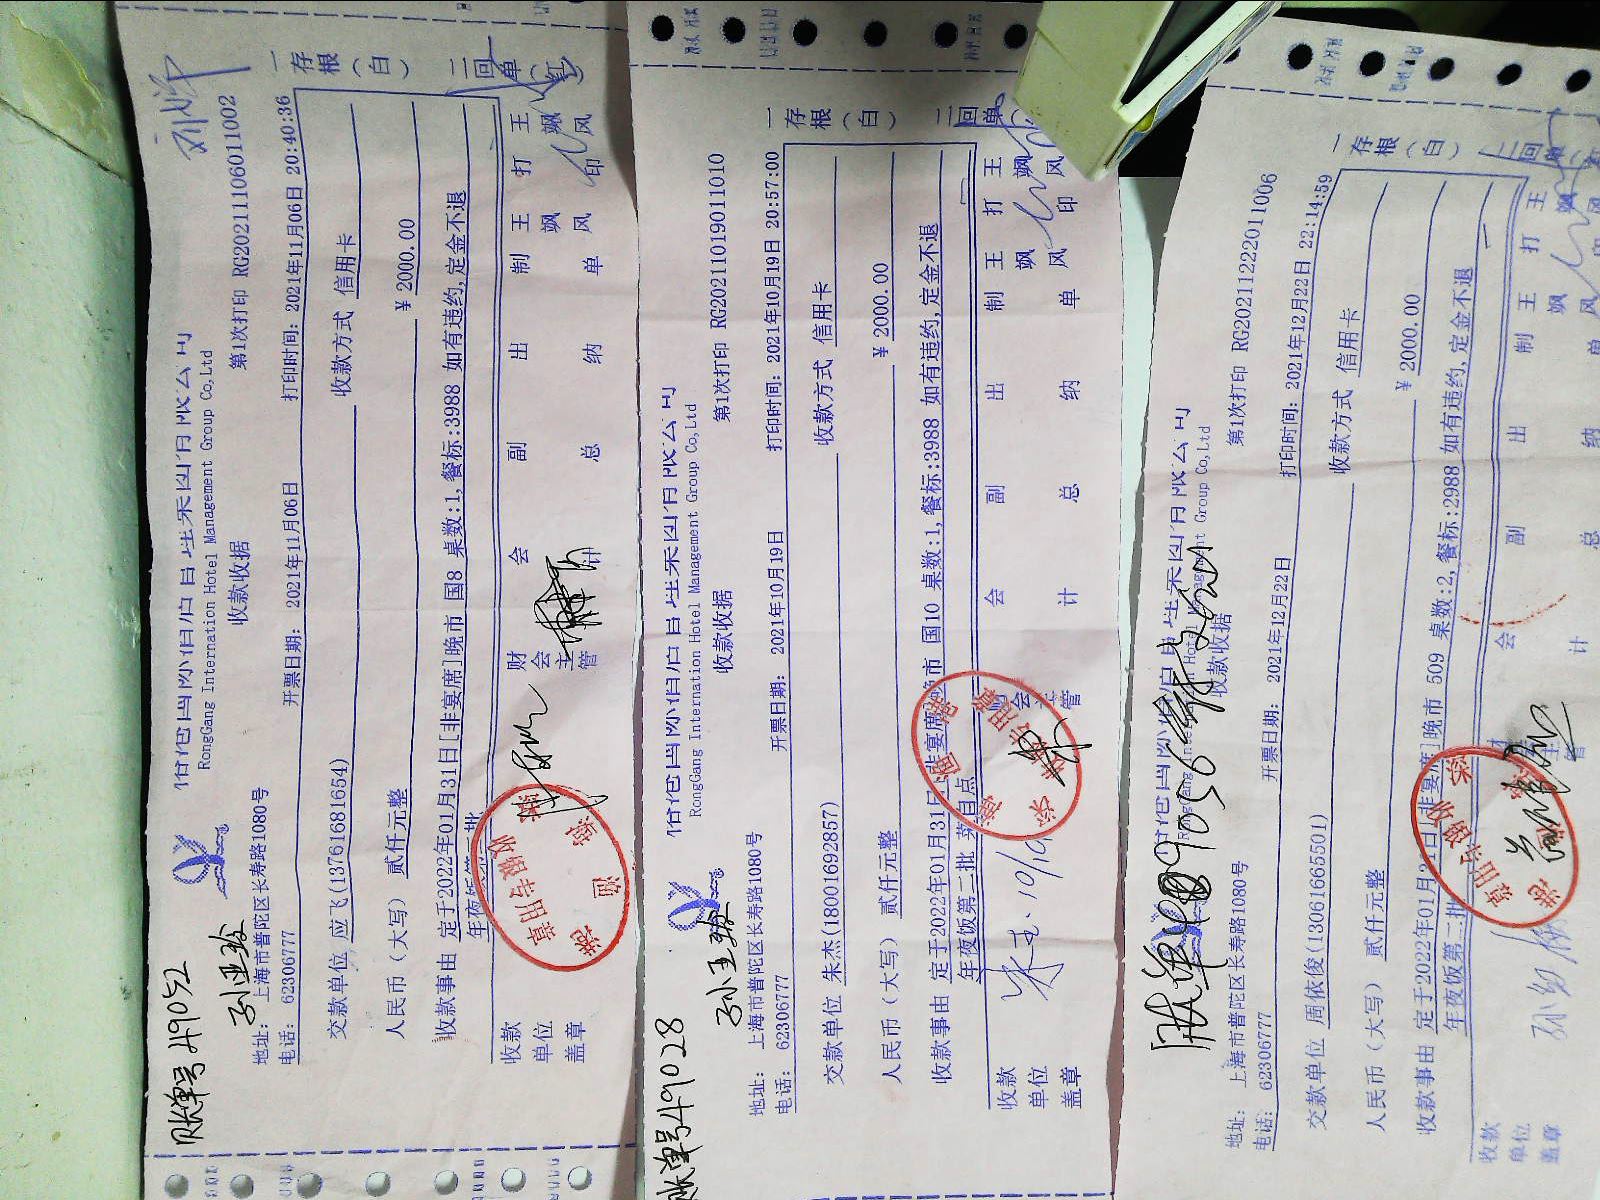 账单号49052
孙亚玲
RongGang Internation Hotel Management Group Co,Ltd
收款收据
第1次打印 RG2021110601​1002
地址: 上海市普陀区长寿路1080号
电话: 62306777
开票日期: 2021年11月06日
打印时间: 2021年11月06日 20:40:36
交款单位 应飞(13761681654)
收款方式 信用卡
人民币（大写）贰仟元整
¥ 2000.00
收款事由 定于2022年01月31日[非宴席]晚市 国8 桌数:1,餐标:3988 如有违约,定金不退
收款单位盖章
财会主管
会计
副总
出纳
制单 王飒风
打印 王飒风
一存根（白）
二回单（红）
账单号49028
RongGang Internation Hotel Management Group Co,Ltd
收款收据
第1次打印 RG20211019011010
地址: 上海市普陀区长寿路1080号
电话: 62306777
开票日期: 2021年10月19日
打印时间: 2021年10月19日 20:57:00
交款单位 朱杰(18001692857)
收款方式 信用卡
人民币（大写）贰仟元整
¥ 2000.00
收款事由 定于2022年01月31日[非宴席]晚市 国10 桌数:1,餐标:3988 如有违约,定金不退
年夜饭第二批 菜自点
10/19
收款单位盖章
会计
副总
出纳
制单 王飒风
打印 王飒风
一存根（白）
二回单
账单
收款收据
第1次打印 RG20211222011006
地址: 上海市普陀区长寿路1080号
电话: 62306777
开票日期: 2021年12月22日
打印时间: 2021年12月22日 22:14:59
交款单位 周依俊(13061665501)
收款方式 信用卡
人民币（大写）贰仟元整
¥ 2000.00
收款事由 定于2022年01月31日[非宴席]晚市 509 桌数:2,餐标:2988 如有违约,定金不退
年夜饭第二批
收款单位盖章
会计
副总
出纳
制单 王飒风
打印
一存根（白）